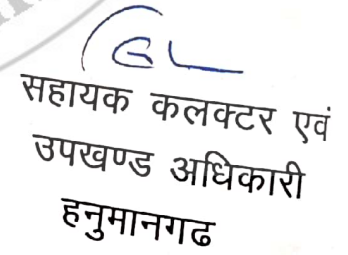 सहायक कलक्टर एवं
उपखण्ड अधिकारी
हनुमानगढ